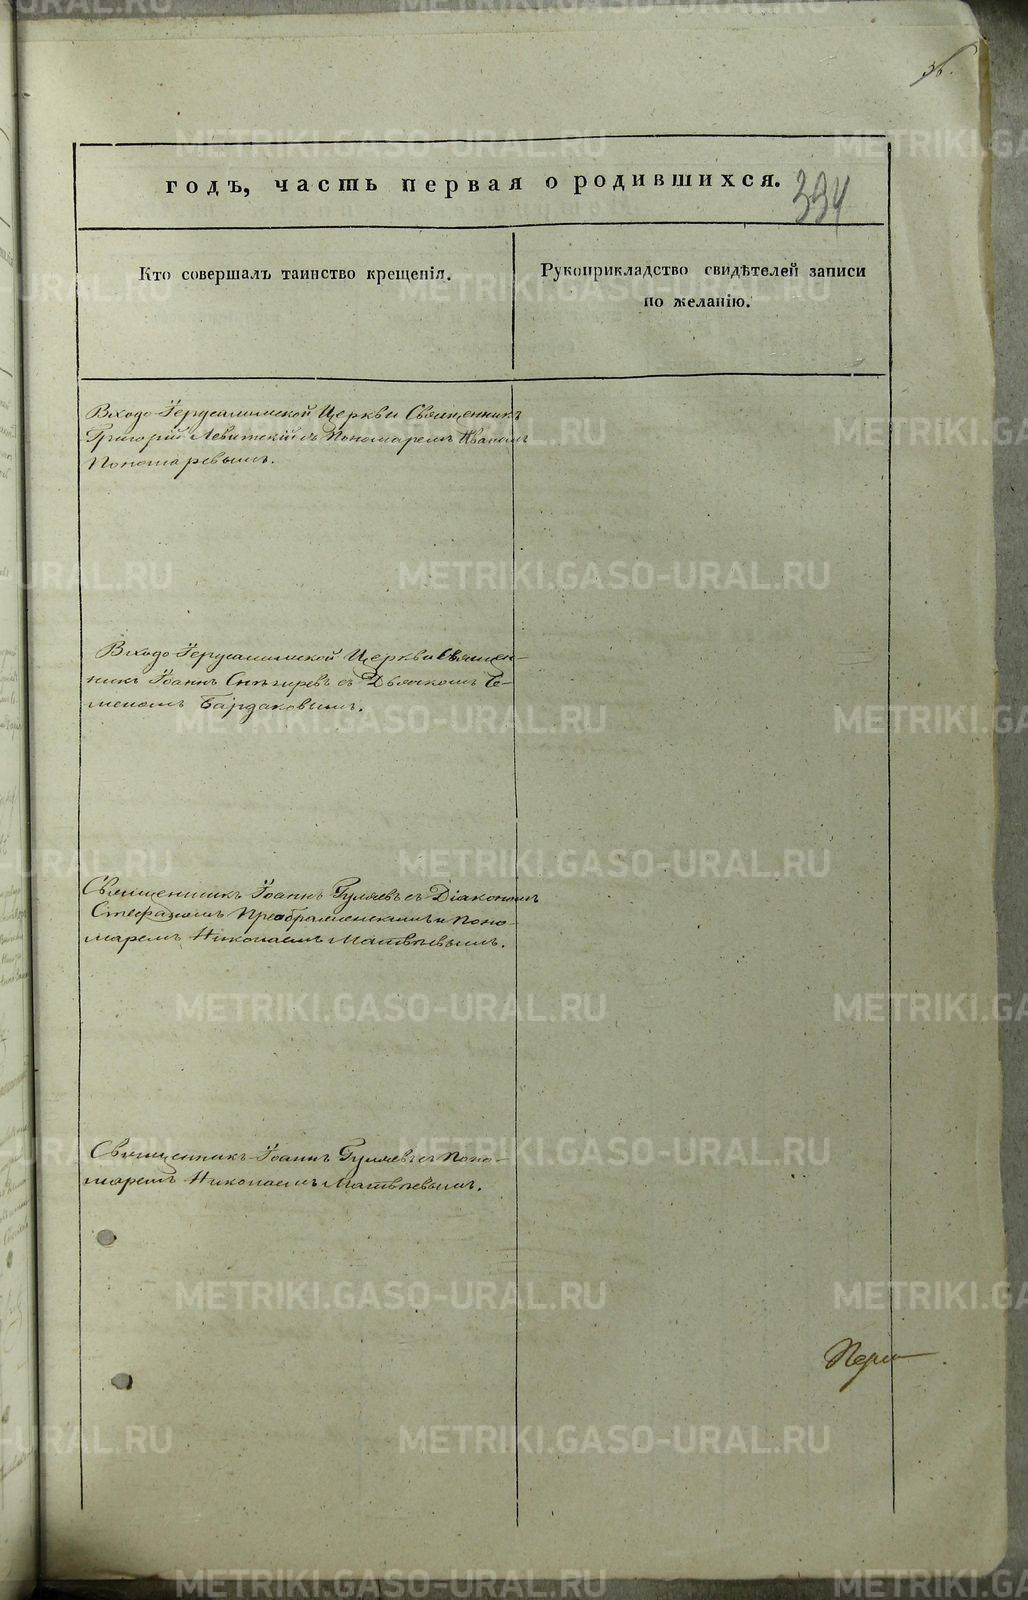 36.
годъ, часть первая о родившихся. 334
Кто совершалъ таинство крещенія.
Рукоприкладство свидѣтелей записи
по желанію.
Входо-Іерусалимской Церкви Священникъ
Григорій Левитскій съ Пономаремъ Иваномъ
Пономаревымъ.
Входо-Іерусалимской Церкви Священ-
никъ Іоаннъ Снѣгиревъ съ Дьячкомъ Се-
меномъ Бардаковымъ.
Священникъ Іоаннъ Гуляевъ съ Діакономъ
Стефаномъ Преображенскимъ и Поно-
маремъ Николаемъ Матвѣевымъ.
Священникъ Іоаннъ Гуляевъ съ Поно-
маремъ Николаемъ Матвѣевымъ.
METRIKI.GASO-URAL.RU